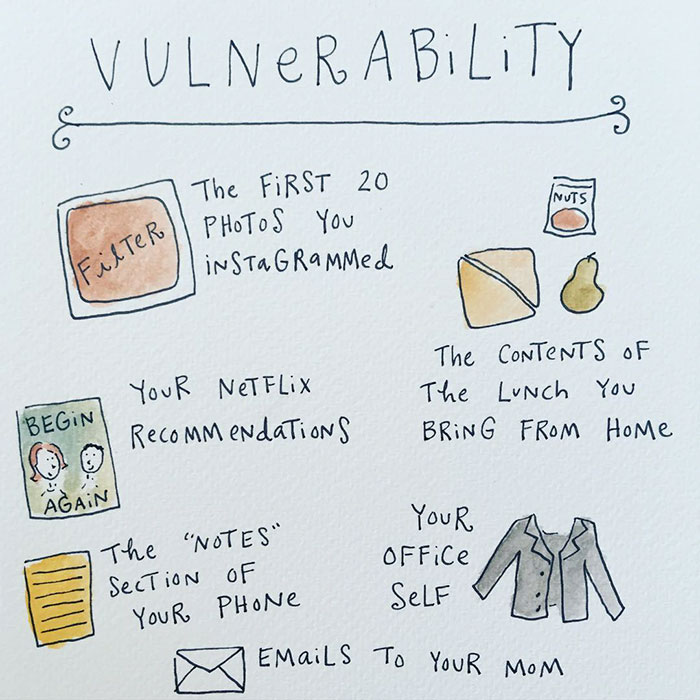 VULNeRABiLiTY
FilTeR
The FiRST 20
PHOTOS YOU
iNSTaGRaMMed
NUTS
The CONTeNTS OF
The LUNCH YOU
BRiNG FROM HOMe
YOUR NeTFLiX
RecOMMeNdATiONS
BEGiN
AGAiN
The "NOTES"
SecTiON OF
YOUR PHONe
YOUR
OFFiCe
SeLF
EMaiLS TO YOUR MOM